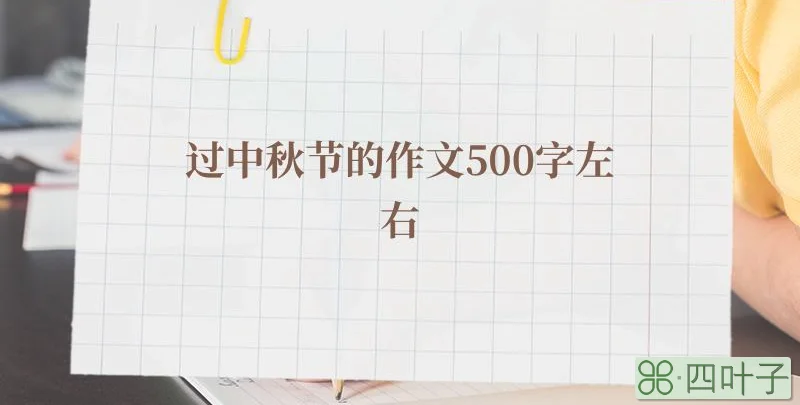 过中秋节的作文500字左
右
四叶子